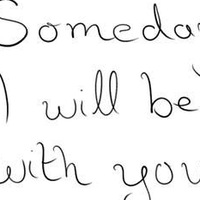 Someday
I will be
with you